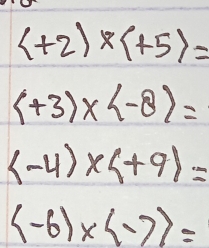 (+2) × (+5) =
(+3) × (-8) =
(-4) × (+9) =
(-6) × (-7) =